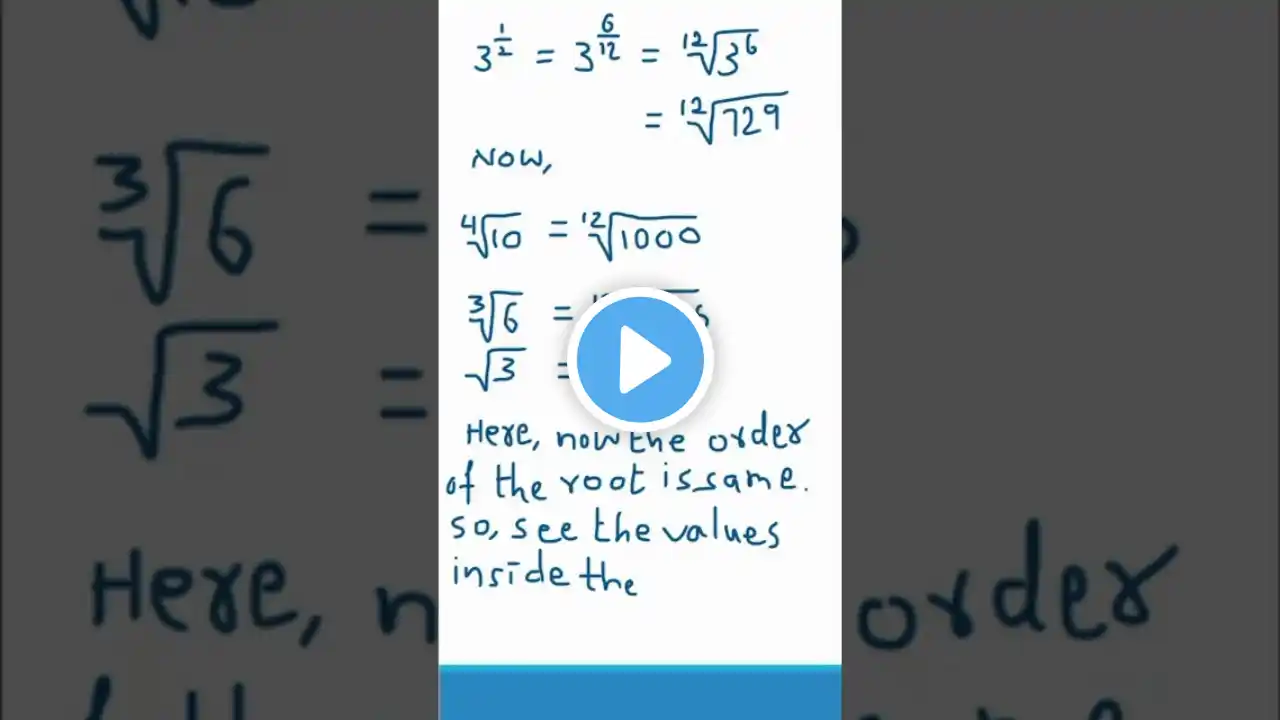 3^{1/2} = 3^{6/12} = \sqrt[12]{3^6}
= \sqrt[12]{729}
Now,
\sqrt[4]{10} = \sqrt[12]{1000}
\sqrt[3]{6} =
\sqrt{3} =
Here, now the order
of the root is same.
so, see the values
inside the